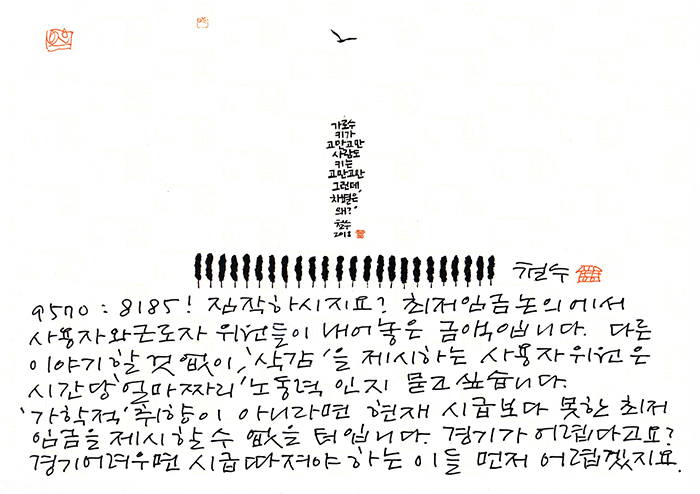 가로수
키가
고만고만
사람도
키는
고만고만
그런데,
차별은
왜?
철수
2018
철수
9570 : 8185! 짐작하시지요? 최저임금논의에서
사용자와근로자 위원들이 내어놓은 금액입니다. 다른
이야기할것 없이, '삭감'을 제시하는 사용자위원은
시간당 '얼마짜리' 노동력 인지 묻고싶습니다.
'가학적' 취향이 아니라면 현재 시급보다 못한 최저
임금을 제시할수 없을 터입니다. 경기가 어렵다고요?
경기어려우면 시급따져야 하는 이들 먼저 어렵겠지요.